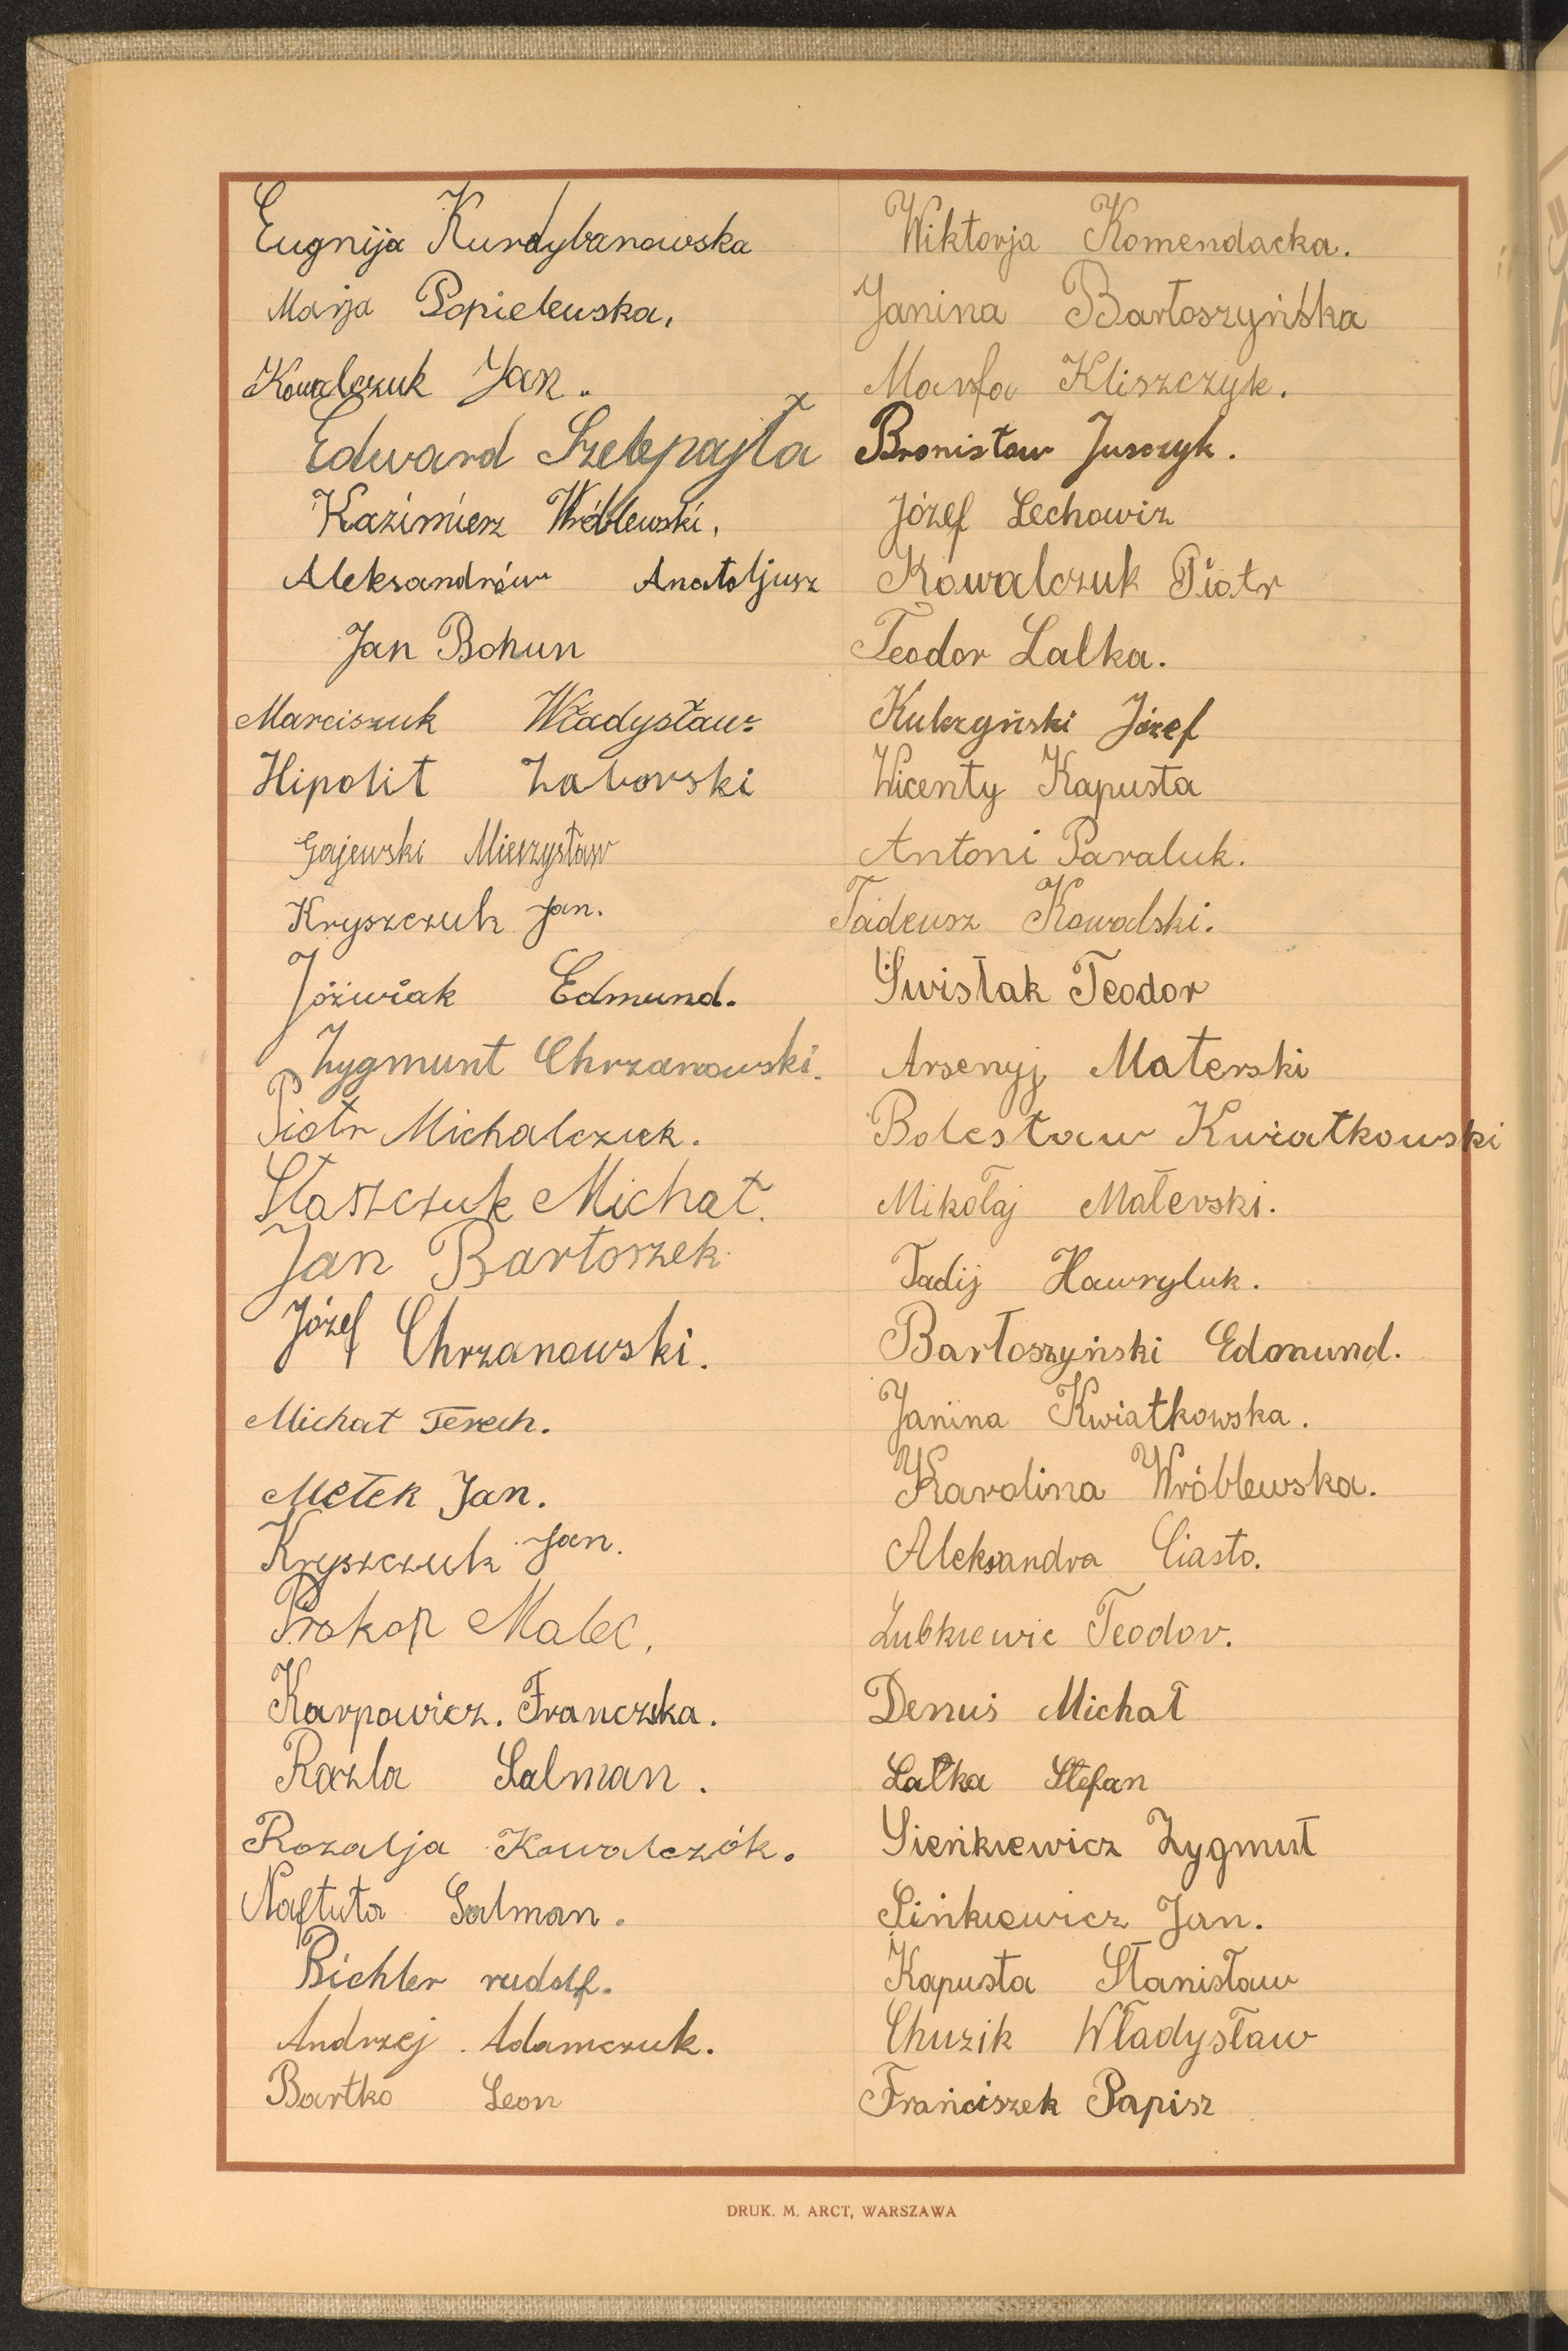 Eugnija Kurdybanowska
Marja Popielewska,
Kowalczuk Jan.
Edward Szelepajła
Kazimierz Wróblewski,
Aleksandrów Anatoljusz
Jan Bohun
Marciszuk Władysław
Hipolit Zaborski
Gajewski Mieczysław
Kryszczuk Jan.
Jóźwiak Edmund.
Zygmunt Chrzanowski.
Piotr Michalczuk.
Staszczuk Michał.
Jan Bartoszek
Józef Chrzanowski.
Michał Terech.
Metek Jan.
Kryszczuk Jan.
Prokop Malec,
Karpowicz. Franczska.
Rozla Salman.
Rozalja Kowalczók.
Naftuła Salman.
Bichler rudolf.
Andrzej Adamczuk.
Bartko Leon
Wiktorja Komendacka.
Janina Bartoszyńska
Marfa Kliszczyk.
Bronisław Jusczyk.
Józef Lechowiz
Kowalczuk Piotr
Teodor Lalka.
Kulczyński Józef
Wicenty Kapusta
Antoni Paraluk.
Tadeusz Kowalski.
Swistak Teodor
Arsenyj Materski
Bolesław Kwiatkowski
Mikołaj Malewski.
Tadij Hawryluk.
Bartoszyński Edmund.
Janina Kwiatkowska.
Karolina Wróblewska.
Aleksandra Ciasto.
Lubkiewic Teodor.
Denuś Michał
Lalka Stefan
Sieńkiewicz Zygmut
Sińkiewicz Jan.
Kapusta Stanisław
Chuzik Władysław
Frańciszek Papisz
DRUK. M. ARCT, WARSZAWA